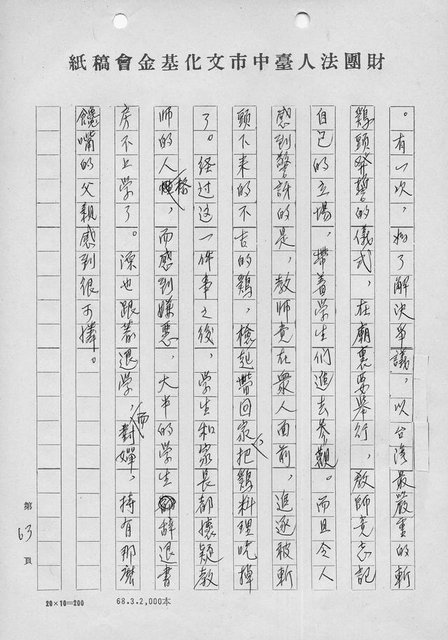 財團法人臺中市文化基金會稿紙
。有一次，為了解決爭議，以台灣最嚴重的斬
鷄頭發誓的儀式，在廟裏要舉行，教師竟忘記
自己的立場，帶着學生們進去参觀。而且令人
感到驚訝的是，教師竟在衆人面前，追逐被斬
頭下来的不吉的鷄，檢起帶回家，把鷄料理吃掉
了。経过这一件事之後，學生和家長都懷疑教
師的人格，而感到嫌惡，大半的學生辭退書
房不上學了。深也跟著退學，而對嬋，持有那麽
饞嘴的父親感到很可憐。
第63頁
20×10=200
68.3.2,000本